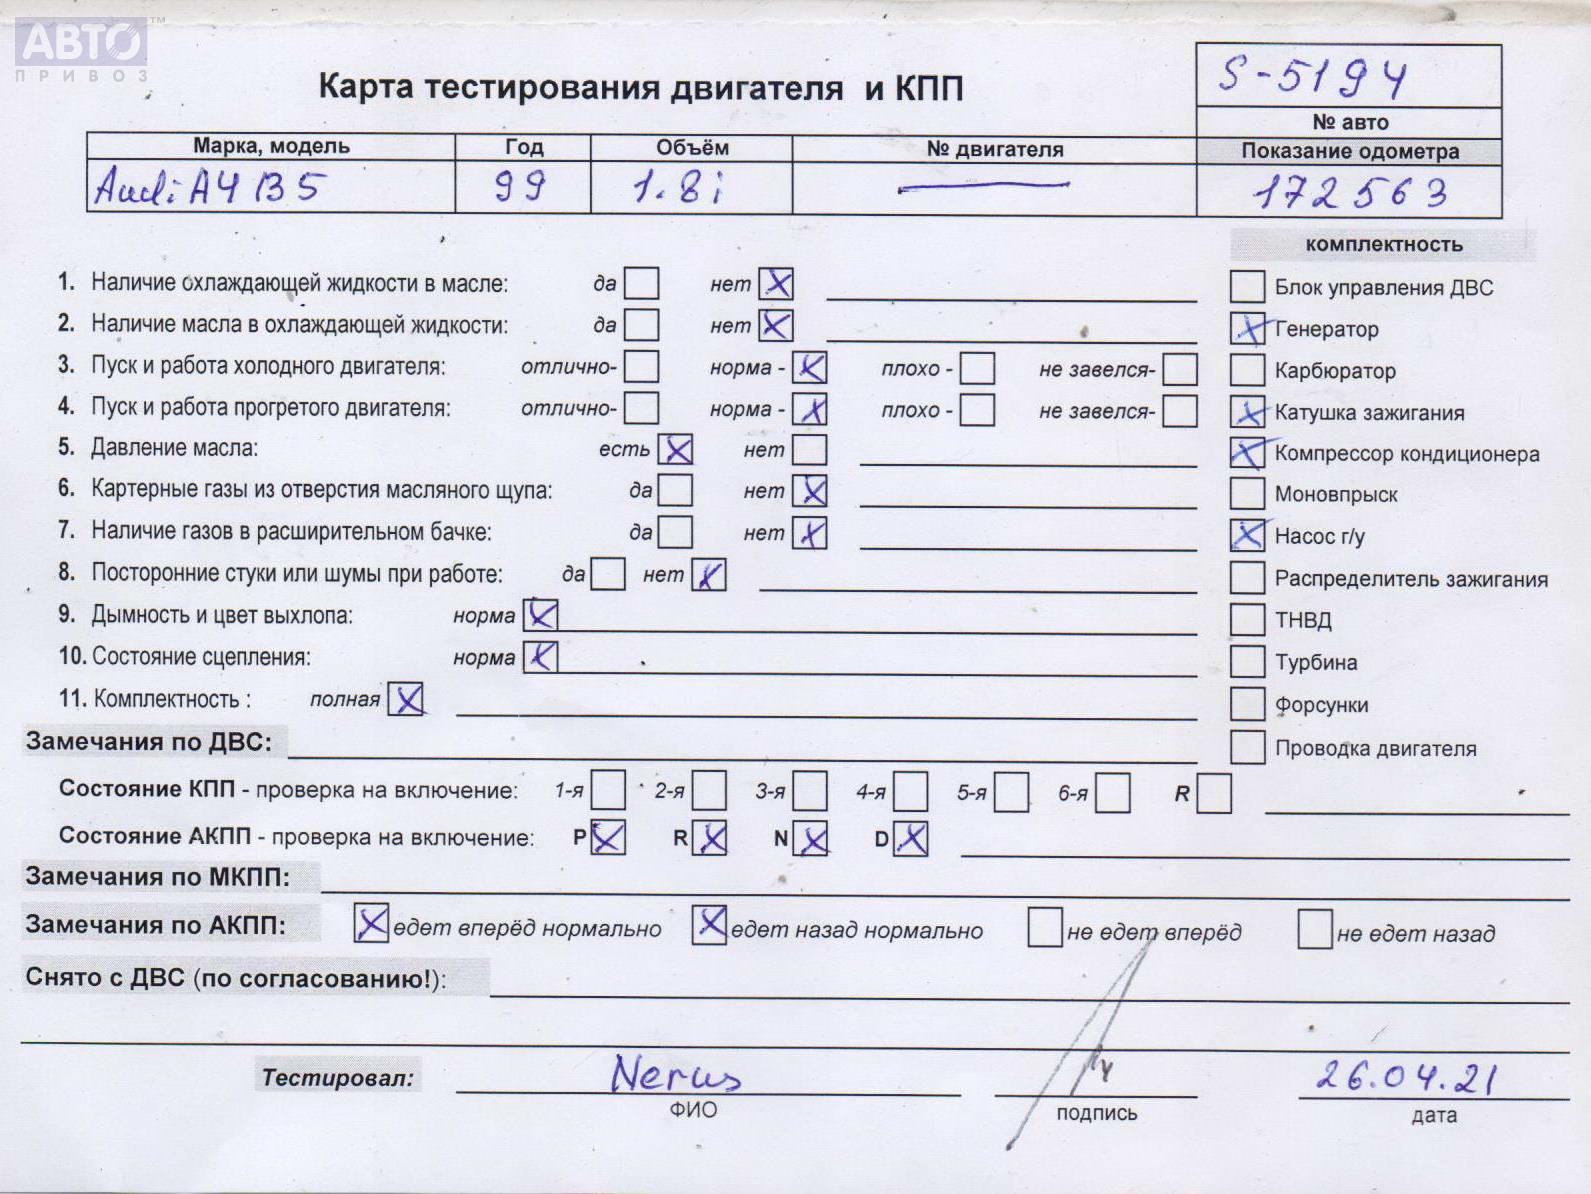 АВТО ™
ПРИВОЗ
S-5194
Карта тестирования двигателя и КПП
№ авто
Марка, модель Год Объём № двигателя Показание одометра
Audi A4 B5 99 1.8i — 172563
комплектность
1. Наличие охлаждающей жидкости в масле: да нет X
Блок управления ДВС
2. Наличие масла в охлаждающей жидкости: да нет X
X Генератор
3. Пуск и работа холодного двигателя: отлично- норма - X плохо - не завелся-
Карбюратор
4. Пуск и работа прогретого двигателя: отлично- норма - X плохо - не завелся-
X Катушка зажигания
5. Давление масла: есть X нет
X Компрессор кондиционера
6. Картерные газы из отверстия масляного щупа: да нет X
Моновпрыск
7. Наличие газов в расширительном бачке: да нет X
X Насос г/у
8. Посторонние стуки или шумы при работе: да нет X
Распределитель зажигания
9. Дымность и цвет выхлопа: норма X
ТНВД
10. Состояние сцепления: норма X
Турбина
11. Комплектность : полная X
Форсунки
Замечания по ДВС:
Проводка двигателя
Состояние КПП - проверка на включение: 1-я 2-я 3-я 4-я 5-я 6-я R
Состояние АКПП - проверка на включение: P X R X N X D X
Замечания по МКПП:
Замечания по АКПП: X едет вперёд нормально X едет назад нормально не едет вперёд не едет назад
Снято с ДВС (по согласованию!):
Тестировал: Nerus 26.04.21
ФИО подпись дата